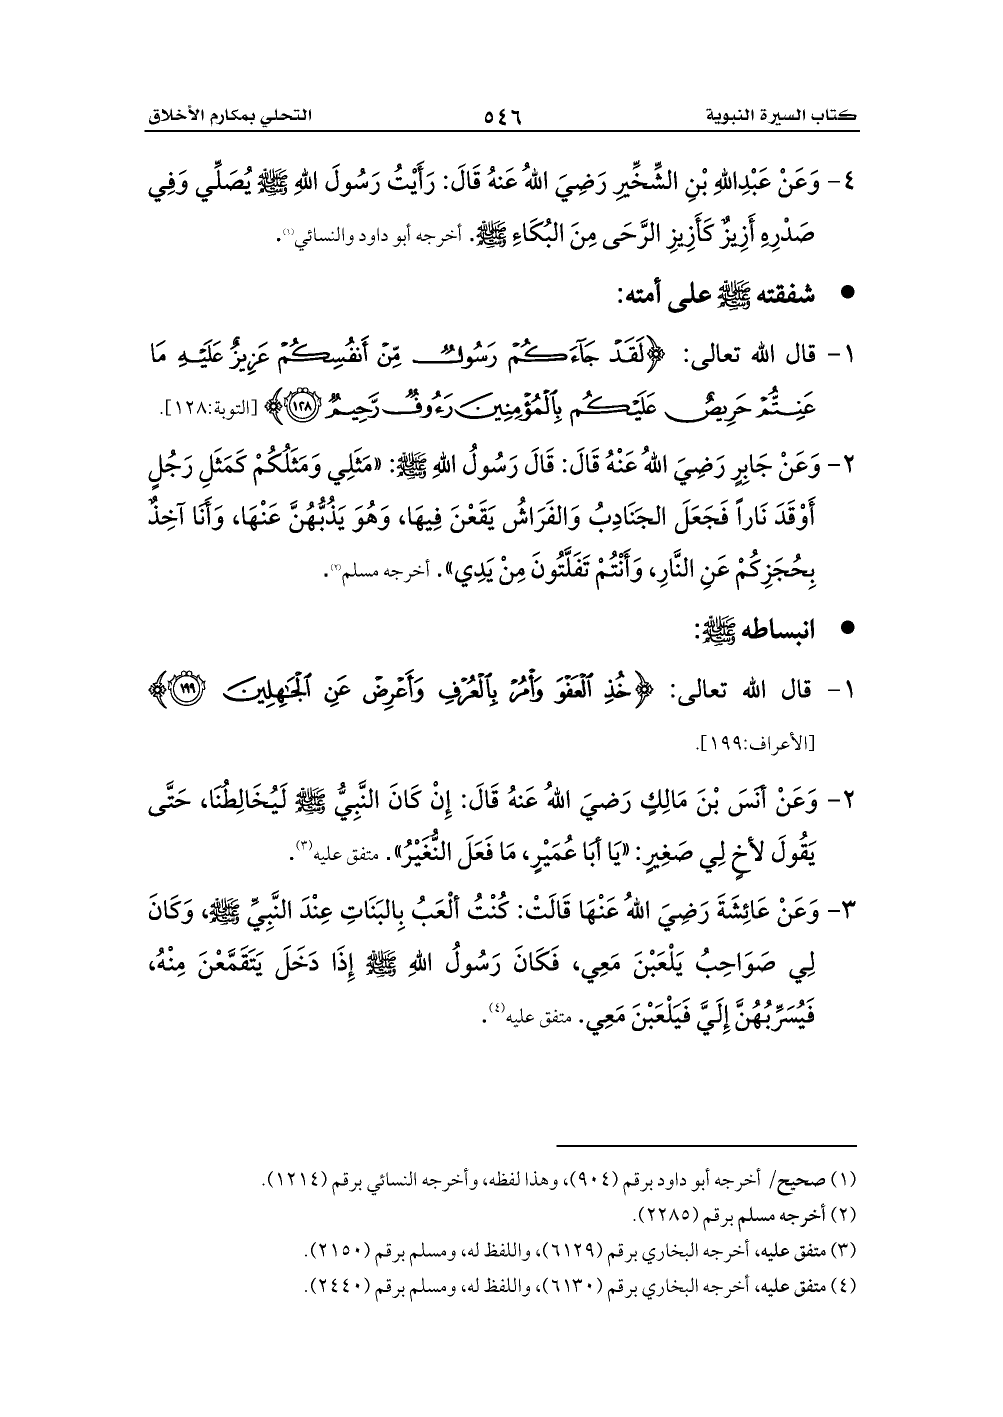 كتاب السيرة النبوية ٥٤٦ التحلي بمكارم الأخلاق
٤- وَعَنْ عَبْدِاللهِ بْنِ الشِّخِّيرِ رَضِيَ اللهُ عَنهُ قَالَ: رَأَيْتُ رَسُولَ اللهِ ﷺ يُصَلِّي وَفِي
صَدْرِهِ أَزِيزٌ كَأَزِيزِ الرَّحَى مِنَ البُكَاءِ ﷺ. أخرجه أبو داود والنسائي(١).
● شفقته ﷺ على أمته:
١- قال الله تعالى: ﴿لَقَدْ جَآءَكُمْ رَسُولٌ مِّنْ أَنفُسِكُمْ عَزِيزٌ عَلَيْهِ مَا
عَنِتُّمْ حَرِيصٌ عَلَيْكُم بِٱلْمُؤْمِنِينَ رَءُوفٌ رَّحِيمٌ ١٢٨﴾ [التوبة:١٢٨].
٢- وَعَنْ جَابِرٍ رَضِيَ اللهُ عَنْهُ قَالَ: قَالَ رَسُولُ اللهِ ﷺ: «مَثَلِي وَمَثَلُكُمْ كَمَثَلِ رَجُلٍ
أَوْقَدَ نَاراً فَجَعَلَ الجَنَادِبُ وَالفَرَاشُ يَقَعْنَ فِيهَا، وَهُوَ يَذُبُّهُنَّ عَنْهَا، وَأَنَا آخِذٌ
بِحُجَزِكُمْ عَنِ النَّارِ، وَأَنْتُمْ تَفَلَّتُونَ مِنْ يَدِي». أخرجه مسلم(٢).
● انبساطه ﷺ:
١- قال الله تعالى: ﴿خُذِ ٱلْعَفْوَ وَأْمُرْ بِٱلْعُرْفِ وَأَعْرِضْ عَنِ ٱلْجَٰهِلِينَ ١٩٩﴾
[الأعراف:١٩٩].
٢- وَعَنْ أَنَسَ بْنَ مَالِكٍ رَضيَ اللهُ عَنهُ قَالَ: إِنْ كَانَ النَّبِيُّ ﷺ لَيُخَالِطُنَا، حَتَّى
يَقُولَ لأخٍ لِي صَغِيرٍ: «يَا أبَا عُمَيْرٍ، مَا فَعَلَ النُّغَيْرُ». متفق عليه(٣).
٣- وَعَنْ عَائِشَةَ رَضِيَ اللهُ عَنْهَا قَالَتْ: كُنْتُ ألْعَبُ بِالبَنَاتِ عِنْدَ النَّبِيِّ ﷺ، وَكَانَ
لِي صَوَاحِبُ يَلْعَبْنَ مَعِي، فَكَانَ رَسُولُ اللهِ ﷺ إِذَا دَخَلَ يَتَقَمَّعْنَ مِنْهُ،
فَيُسَرِّبُهُنَّ إِلَيَّ فَيَلْعَبْنَ مَعِي. متفق عليه(٤).
(١) صحيح/ أخرجه أبو داود برقم (٩٠٤)، وهذا لفظه، وأخرجه النسائي برقم (١٢١٤).
(٢) أخرجه مسلم برقم (٢٢٨٥).
(٣) متفق عليه، أخرجه البخاري برقم (٦١٢٩)، واللفظ له، ومسلم برقم (٢١٥٠).
(٤) متفق عليه، أخرجه البخاري برقم (٦١٣٠)، واللفظ له، ومسلم برقم (٢٤٤٠).